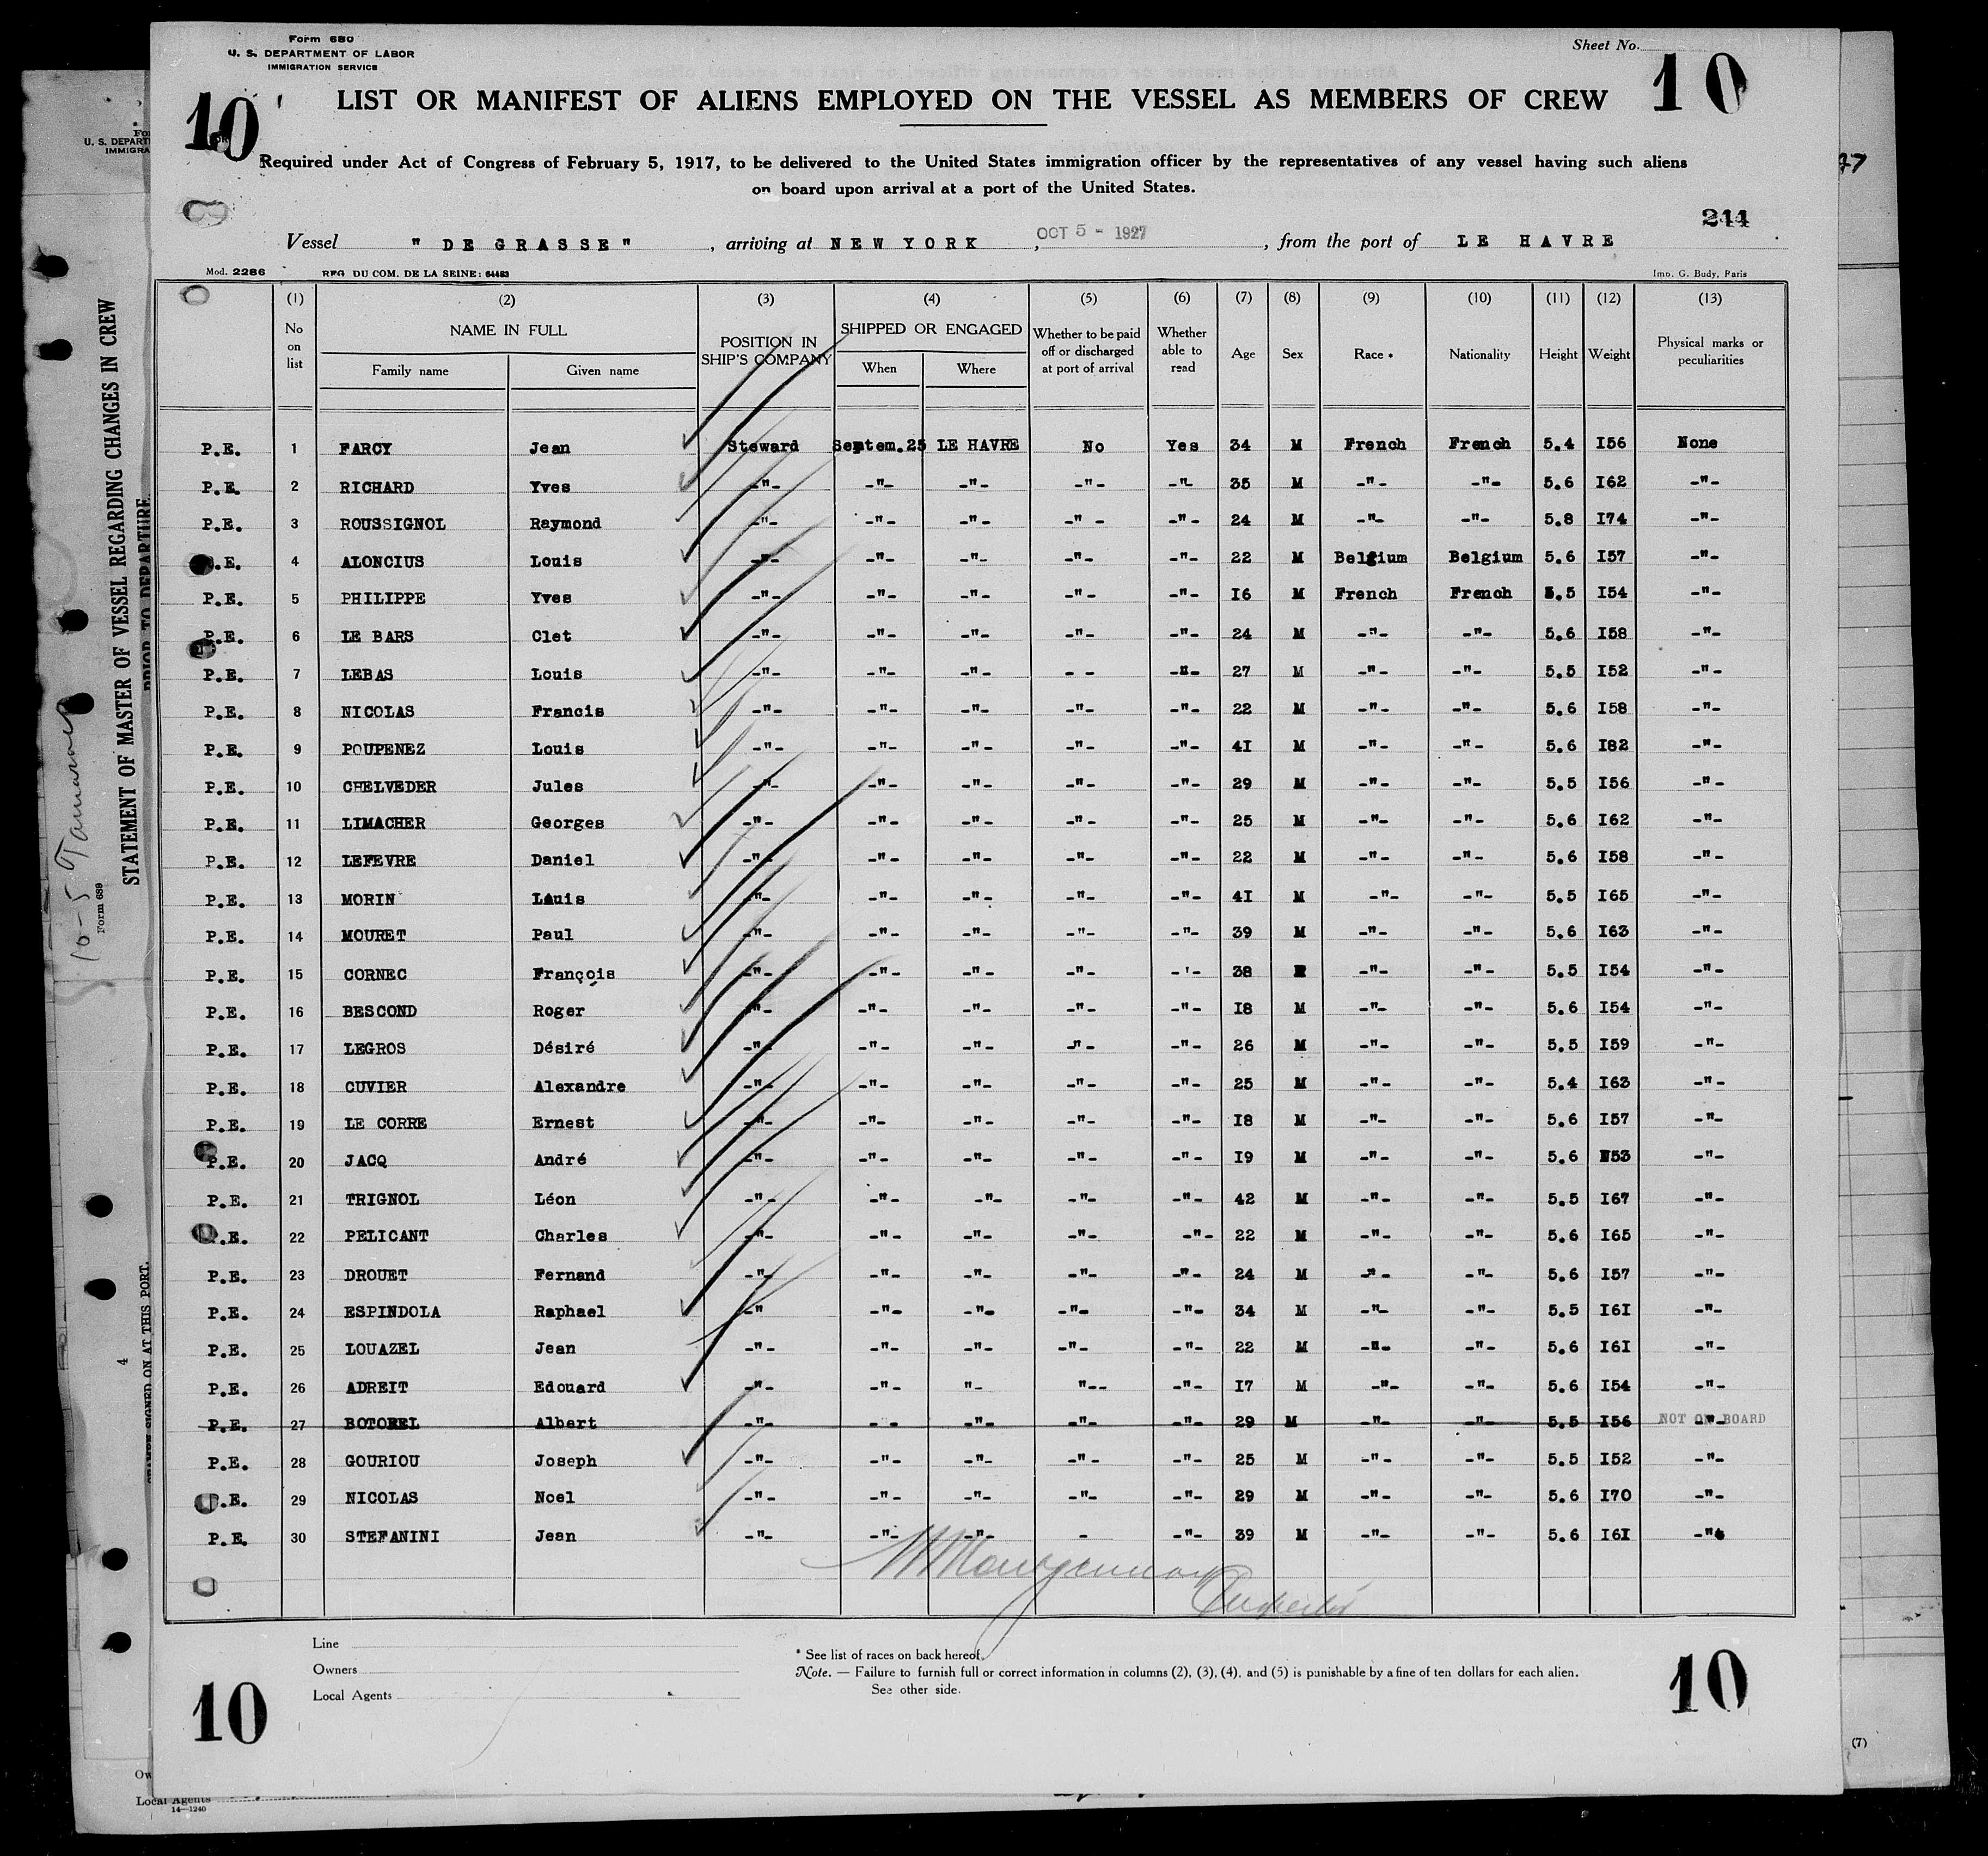 Form 680
U. S. DEPARTMENT OF LABOR
IMMIGRATION SERVICE
Sheet No.
10
10
LIST OR MANIFEST OF ALIENS EMPLOYED ON THE VESSEL AS MEMBERS OF CREW
Required under Act of Congress of February 5, 1917, to be delivered to the United States immigration officer by the representatives of any vessel having such aliens
on board upon arrival at a port of the United States.
244
Vessel " DE GRASSE" , arriving at NEW YORK , OCT 5 - 1927 , from the port of LE HAVRE
Mod. 2286 REG DU COM. DE LA SEINE: 64483 Imp. G. Budy, Paris
(1) (2) (3) (4) (5) (6) (7) (8) (9) (10) (11) (12) (13)
No on list NAME IN FULL POSITION IN SHIP'S COMPANY SHIPPED OR ENGAGED Whether to be paid off or discharged at port of arrival Whether able to read Age Sex Race * Nationality Height Weight Physical marks or peculiarities
Family name Given name When Where
P.E. 1 FARCY Jean Steward Septem.25 LE HAVRE No Yes 34 M French French 5.4 I56 None
P.E. 2 RICHARD Yves -"- -"- -"- -"- -"- 35 M -"- -"- 5.6 I62 -"-
P.E. 3 ROUSSIGNOL Raymond -"- -"- -"- -"- -"- 24 M -"- -"- 5.8 I74 -"-
P.E. 4 ALONCIUS Louis -"- -"- -"- -"- -"- 22 M Belgium Belgium 5.6 I57 -"-
P.E. 5 PHILIPPE Yves -"- -"- -"- -"- -"- I6 M French French 5.5 I54 -"-
P.E. 6 LE BARS Clet -"- -"- -"- -"- -"- 24 M -"- -"- 5.6 I58 -"-
P.E. 7 LEBAS Louis -"- -"- -"- - - -"- 27 M -"- -"- 5.5 I52 -"-
P.E. 8 NICOLAS Francis -"- -"- -"- -"- -"- 22 M -"- -"- 5.6 I58 -"-
P.E. 9 POUPENEZ Louis -"- -"- -"- -"- -"- 4I M -"- -"- 5.6 I82 -"-
P.E. 10 CHELVEDER Jules -"- -"- -"- -"- -"- 29 M -"- -"- 5.5 I56 -"-
P.E. 11 LIMACHER Georges -"- -"- -"- -"- -"- 25 M -"- -"- 5.6 I62 -"-
P.E. 12 LEFEVRE Daniel -"- -"- -"- -"- -"- 22 M -"- -"- 5.6 I58 -"-
P.E. 13 MORIN Lauis -"- -"- -"- -"- -"- 4I M -"- -"- 5.5 I65 -"-
P.E. 14 MOURET Paul -"- -"- -"- -"- -"- 39 M -"- -"- 5.6 I63 -"-
P.E. 15 CORNEC François -"- -"- -"- -"- -'- 38 -"- -"- 5.5 I54 -"-
P.E. 16 BESCOND Roger -"- -"- -"- -"- -"- I8 M -"- -"- 5.6 I54 -"-
P.E. 17 LEGROS Désiré -"- -"- -"- -"- -"- 26 M -"- -"- 5.5 I59 -"-
P.E. 18 CUVIER Alexandre -"- -"- -"- -"- -"- 25 M -"- -"- 5.4 I63 -"-
P.E. 19 LE CORRE Ernest -"- -"- -"- -"- -"- I8 M -"- -"- 5.6 I57 -"-
P.E. 20 JACQ André -"- -"- -"- -"- -"- I9 M -"- -"- 5.6 I53 -"-
P.E. 21 TRIGNOL Léon -"- -"- -"- -"- -"- 42 M -"- -"- 5.5 I67 -"-
P.E. 22 PELICANT Charles -"- -"- -"- -"- -"- 22 M -"- -"- 5.6 I65 -"-
P.E. 23 DROUET Fernand -"- -"- -"- -"- -"- 24 M -"- -"- 5.6 I57 -"-
P.E. 24 ESPINDOLA Raphael -" -"- -"- -"- -"- 34 M -"- -"- 5.5 I6I -"-
P.E. 25 LOUAZEL Jean -"- -"- -"- -"- -"- 22 M -"- -"- 5.6 I6I -"-
P.E. 26 ADREIT Edouard -"- -"- "- "-- -"- I7 M -"- -"- 5.6 I54 -"-
P.E. 27 BOTOREL Albert -"- - - -"- -"- -"- 29 M -"- -"- 5.5 I56 -"- NOT ON BOARD
P.E. 28 GOURIOU Joseph -"- -"- -"- -"- -"- 25 M -"- -"- 5.5 I52 -"-
P.E. 29 NICOLAS Noel -"- -"- -"- -"- -"- 29 M -"- -"- 5.6 I70 -"-
P.E. 30 STEFANINI Jean -"- -"- -"- - -"- 39 M -"- -"- 5.6 I6I -"-
Inspector
Line
Owners
Local Agents
* See list of races on back hereof.
Note. — Failure to furnish full or correct information in columns (2), (3), (4), and (5) is punishable by a fine of ten dollars for each alien.
See other side.
10
10
U. S. DEPART
IMMIGRA
STATEMENT OF MASTER OF VESSEL REGARDING CHANGES IN CREW
PRIOR TO DEPARTURE
Form 689
10-5
SIGNED ON AT THIS PORT.
4
Local Agents
14—1240
(7)